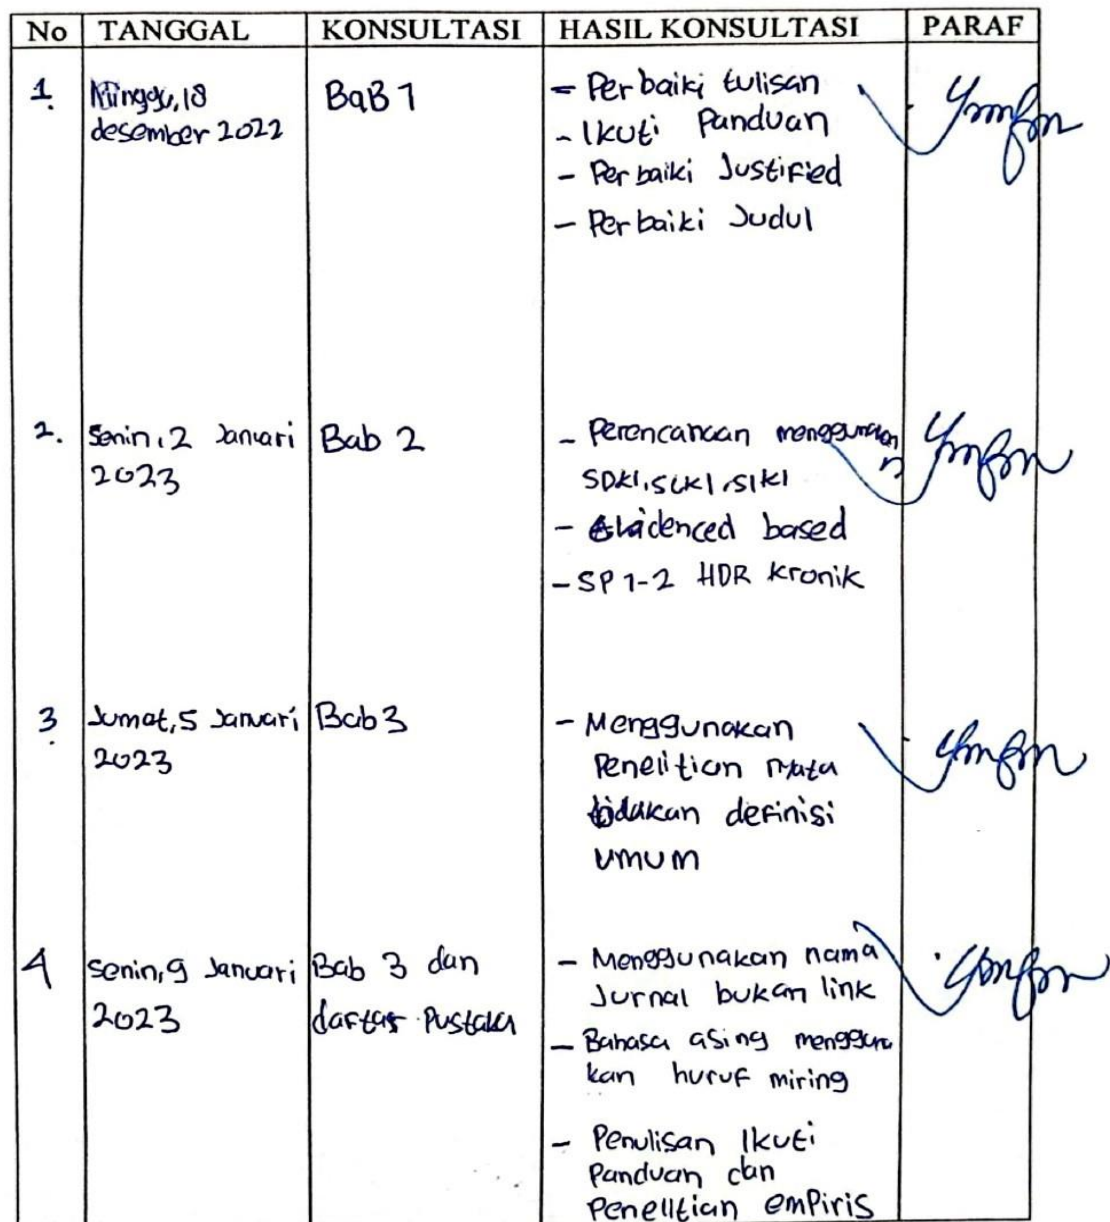 No TANGGAL KONSULTASI HASIL KONSULTASI PARAF
1. Minggu, 18
desember 2022
BaB 1
- Perbaiki tulisan
- Ikuti Panduan
- Perbaiki Justified
- Perbaiki Judul
2. Senin, 2 Januari
2023
Bab 2
- Perencanaan menggunakan
SDKI, SLKI, SIKI
- Evidenced based
- SP 1-2 HDR Kronik
3. Jumat, 5 Januari
2023
Bab 3
- Menggunakan
Penelitian
definisi
umum
4 Senin, 9 Januari
2023
Bab 3 dan
daftar Pustaka
- Menggunakan nama
Jurnal bukan link
- Bahasa asing mengguna
kan huruf miring
- Penulisan Ikuti
Panduan dan
Penelitian empiris